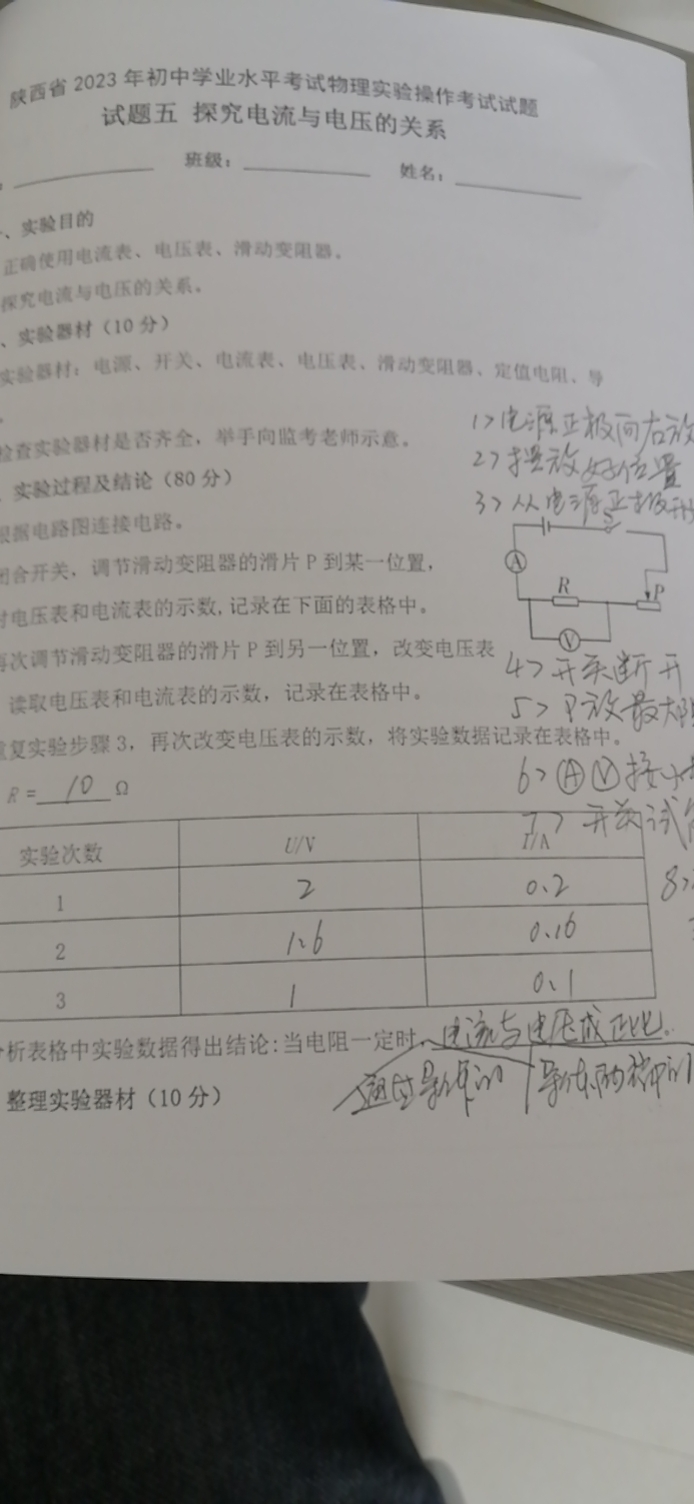 陕西省 2023 年初中学业水平考试物理实验操作考试试题
试题五 探究电流与电压的关系
班级： 姓名：
、实验目的
正确使用电流表、电压表、滑动变阻器。
探究电流与电压的关系。
、实验器材（10 分）
实验器材：电源、开关、电流表、电压表、滑动变阻器、定值电阻、导
检查实验器材是否齐全，举手向监考老师示意。
1> 电源正极向右放
2> 摆放好位置
实验过程及结论（80 分）
3> 从电源正极开
根据电路图连接电路。
S
A
R
P
V
闭合开关，调节滑动变阻器的滑片 P 到某一位置，
对电压表和电流表的示数,记录在下面的表格中。
再次调节滑动变阻器的滑片 P 到另一位置，改变电压表
读取电压表和电流表的示数，记录在表格中。
4> 开关断开
5> P放最大阻
重复实验步骤 3，再次改变电压表的示数，将实验数据记录在表格中。
R = 10 Ω
6> A V 接
7> 开关试
实验次数 U/V I/A
1 2 0.2
8>
2 1.6 0.16
3 1 0.1
分析表格中实验数据得出结论:当电阻一定时，电流与电压成正比.
通过导体的 导体两端的
整理实验器材（10 分）